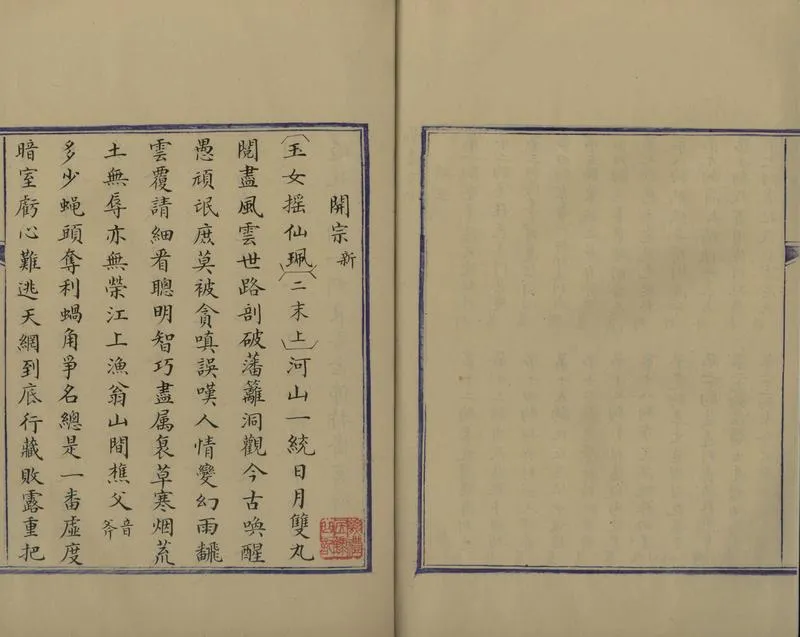 開宗新
玉女摇仙珮二末上河山一統日月雙丸
閱盡風雲世路剖破藩籬洞觀今古喚醒
愚頑氓庶莫被貪嗔誤嘆人情變幻雨飜
雲覆請細看聰明智巧盡属衰草寒烟荒
土無辱亦無榮江上漁翁山間樵父音斧
多少蝇頭奪利蝸角爭名總是一番虛度
暗室虧心難逃天網到底行藏敗露重把